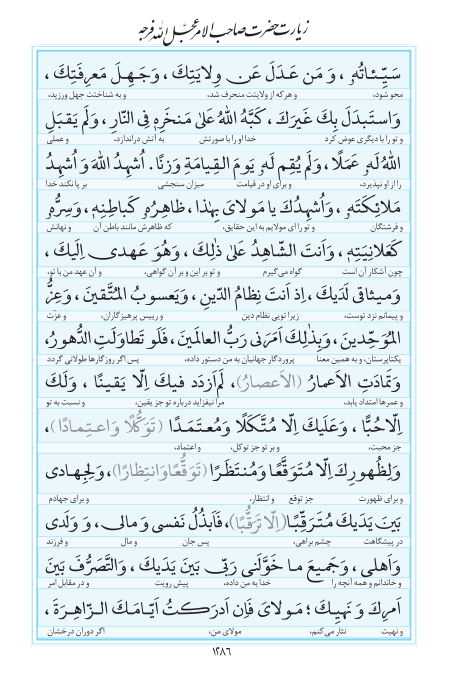 زیارت حضرت صاحب الامر عجّل الله فرجه
سَیِّئاتُهُ، وَ مَن عَدَلَ عَن وِلایَتِكَ، وَجَهِلَ مَعرِفَتَكَ،
محو شود، و هر که از ولایتت منحرف شد، و به شناختت جهل ورزید،
وَاستَبدَلَ بِكَ غَیرَكَ، كَبَّهُ اللهُ عَلیٰ مَنخَرِهِ فِی النّارِ، وَلَم یَقبَلِ
و تو را با دیگری عوض کرد خدا او را با صورتش به آتش دراندازد، و عملی
اللهُ لَهُ عَمَلًا، وَلَم یُقِم لَهُ یَومَ القِیامَةِ وَزنًا. اُشهِدُ اللهَ وَ اُشهِدُ
را از او نپذیرد، و برای او در قیامت میزان سنجشی بر پا نکند خدا
مَلائِكَتَهُ، وَاُشهِدُكَ یا مَولایَ بِهٰذا، ظاهِرُهُ كَباطِنِهِ، وَسِرُّهُ
و فرشتگان و تو را ای مولایم به این حقایق، که ظاهرش مانند باطن آن و نهانش
كَعَلانِیَتِهِ، وَاَنتَ الشّاهِدُ عَلیٰ ذٰلِكَ، وَهُوَ عَهدی اِلَیكَ،
چون آشکار آن است گواه می‌گیرم و تو بر این و بر آن گواهی، و آن عهد من با تو،
وَمیثاقی لَدَیكَ، اِذ اَنتَ نِظامُ الدّینِ، وَیَعسوبُ المُتَّقینَ، وَعِزُّ
و پیمانم نزد توست، زیرا تویی نظام دین و رییس پرهیزگاران، و عزت
المُوَحِّدینَ، وَبِذٰلِكَ اَمَرَنی رَبُّ العالَمینَ، فَلَو تَطاوَلَتِ الدُّهورُ،
یکتاپرستان، و به همین معنا پروردگار جهانیان به من دستور داده، پس اگر روزگارها طولانی گردد
وَتَمادَتِ الاَعمارُ (الاَعصارُ)، لَم اَزدَد فیكَ اِلّا یَقینًا، وَلَكَ
و عمرها امتداد یابد، مرا نیفزاید درباره تو جز یقین، و نسبت به تو
اِلّا حُبًّا، وَعَلَیكَ اِلّا مُتَّكَلًا وَمُعتَمَدًا (تَوَكُّلًا وَاعتِمادًا)،
جز محبت، و بر تو جز توکل، و اعتماد،
وَلِظُهورِكَ اِلّا مُتَوَقَّعًا وَمُنتَظَرًا (تَوَقُّعًا وَانتِظارًا)، وَلِجِهادی
و برای ظهورت جز توقع و انتظار، و برای جهادم
بَینَ یَدَیكَ مُتَرَقَّبًا (اِلّا تَرَقُّبًا)، فَاَبذُلُ نَفسی وَ مالی، وَ وَلَدی
در پیشگاهت چشم براهی، پس جان و مال و فرزند
وَاَهلی، وَجَمیعَ ما خَوَّلَنی رَبّی بَینَ یَدَیكَ، وَالتَّصَرُّفَ بَینَ
و خاندانم و همه آنچه را خدا به من داده، پیش رویت و در مقابل امر
اَمرِكَ وَ نَهیِكَ؛ مَولایَ فَاِن اَدرَكتُ اَیّامَكَ الزّاهِرَةَ،
و نهیت نثار می‌کنم، مولای من، اگر دوران درخشان
۱۲۸۶